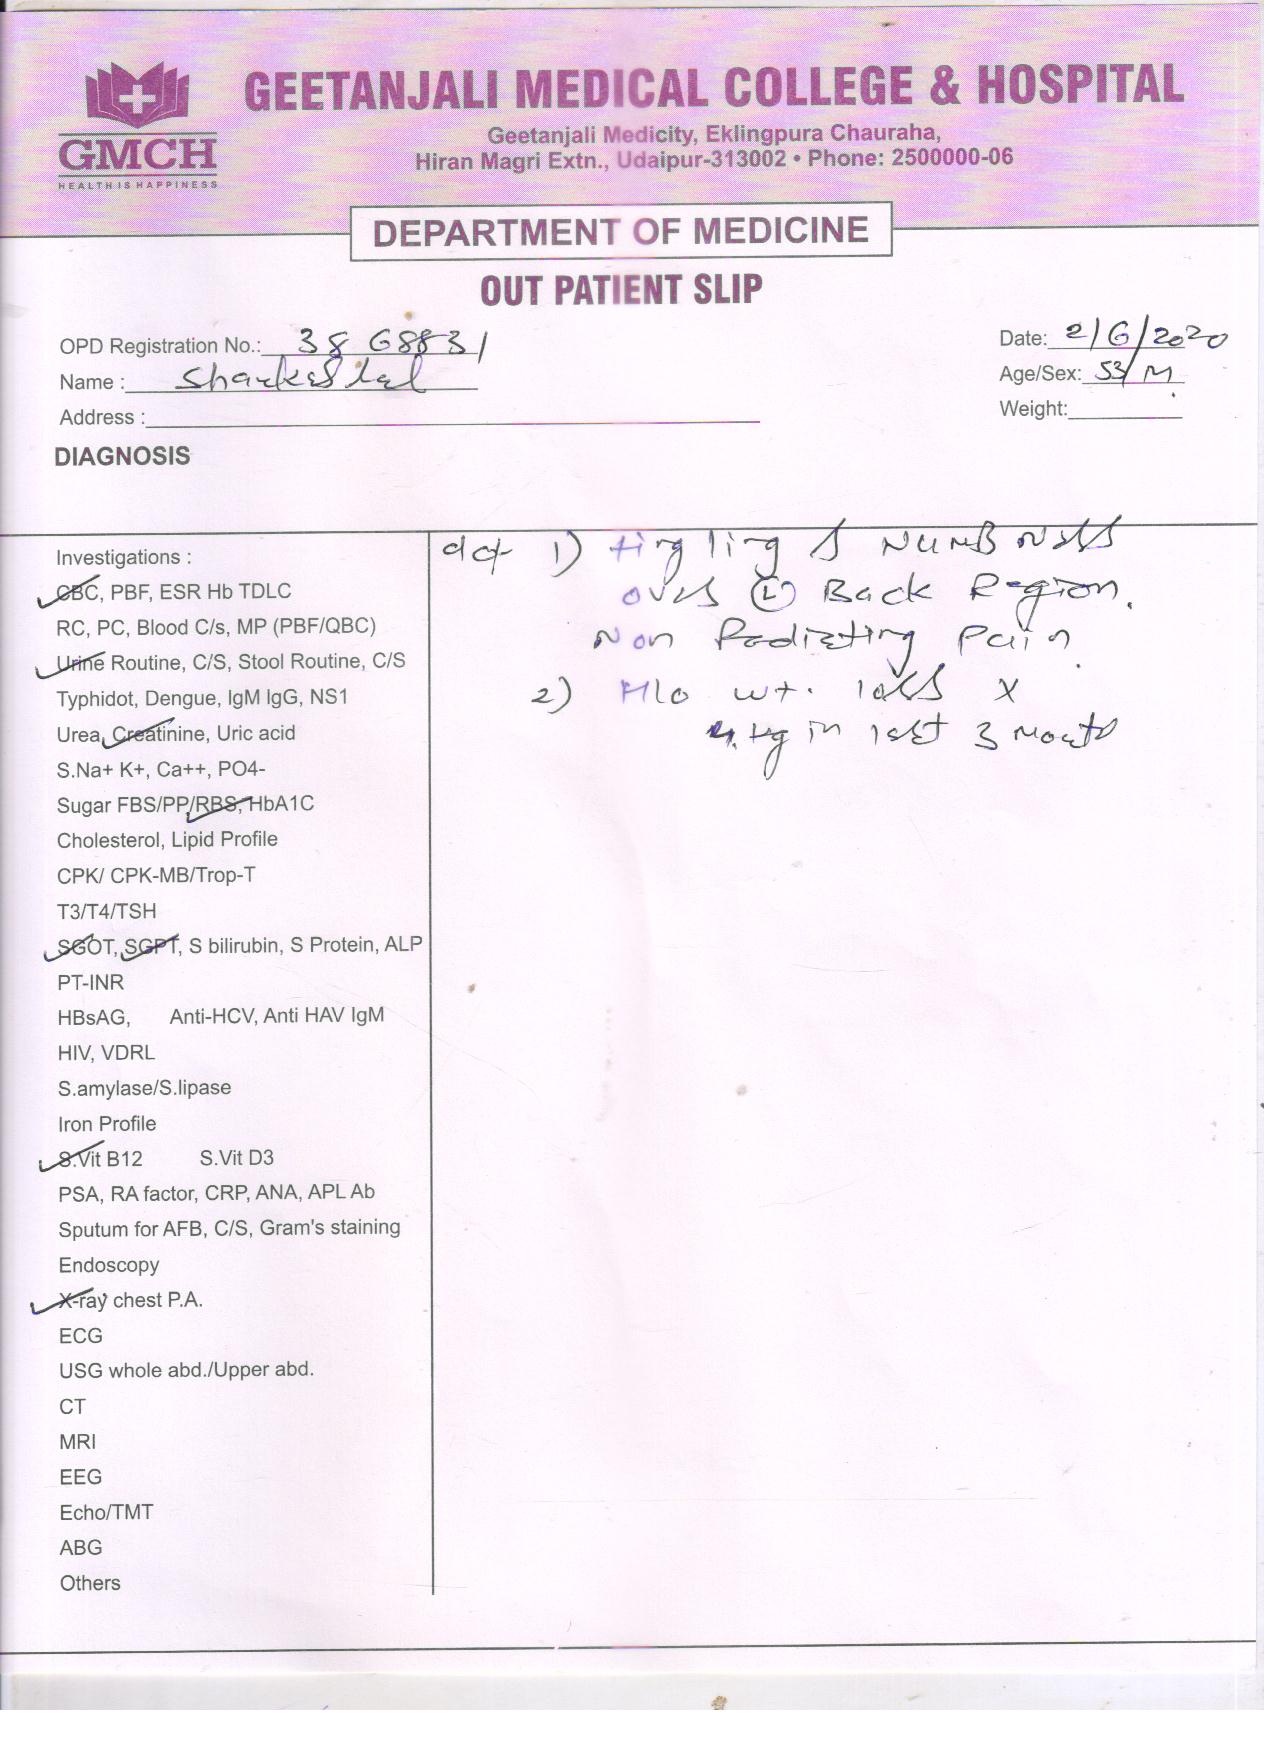 GMCH
HEALTH IS HAPPINESS
GEETANJALI MEDICAL COLLEGE & HOSPITAL
Geetanjali Medicity, Eklingpura Chauraha,
Hiran Magri Extn., Udaipur-313002 • Phone: 2500000-06
DEPARTMENT OF MEDICINE
OUT PATIENT SLIP
OPD Registration No.: 38 68831
Date: 2/6/2020
Name : lal
Age/Sex: 53/M
Address :
Weight:
DIAGNOSIS
Investigations :
CBC, PBF, ESR Hb TDLC
RC, PC, Blood C/s, MP (PBF/QBC)
Urine Routine, C/S, Stool Routine, C/S
Typhidot, Dengue, IgM IgG, NS1
Urea, Creatinine, Uric acid
S.Na+ K+, Ca++, PO4-
Sugar FBS/PP/RBS, HbA1C
Cholesterol, Lipid Profile
CPK/ CPK-MB/Trop-T
T3/T4/TSH
SGOT, SGPT, S bilirubin, S Protein, ALP
PT-INR
HBsAG, Anti-HCV, Anti HAV IgM
HIV, VDRL
S.amylase/S.lipase
Iron Profile
S.Vit B12 S.Vit D3
PSA, RA factor, CRP, ANA, APL Ab
Sputum for AFB, C/S, Gram's staining
Endoscopy
X-ray chest P.A.
ECG
USG whole abd./Upper abd.
CT
MRI
EEG
Echo/TMT
ABG
Others
1) tingling & Numbness
over (L) Back Region.
Non Radiating Pain
2) H/o wt. loss x
4 kg in last 3 months